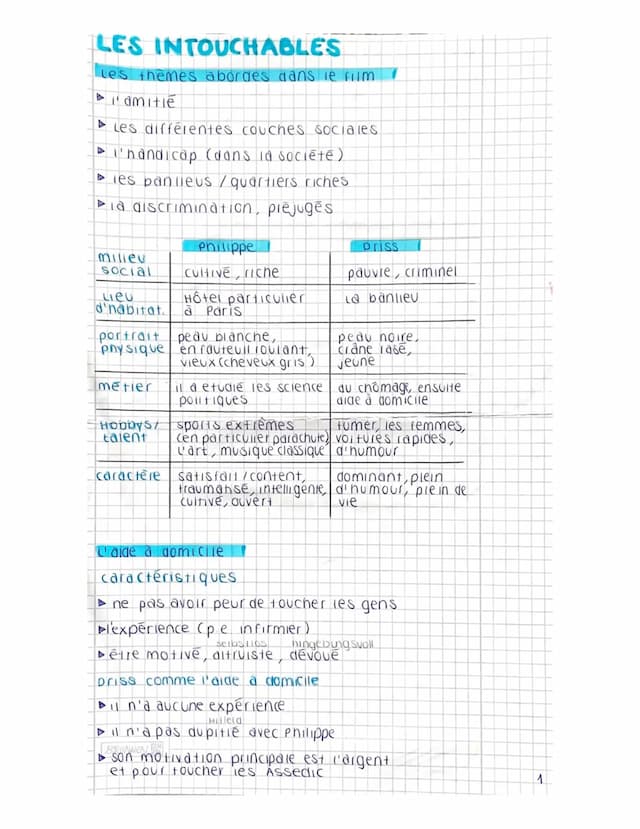 LES INTOUCHABLES
Les thèmes abordés dans le film
l'amitié
Les différentes couches sociales
l'handicap (dans la société)
les banlieus / quartiers riches
la discrimination, préjugés
Philippe Driss
milieu social cultivé, riche pauvre, criminel
Lieu d'habitat. Hôtel particulier à Paris La banlieu
portrait physique peau blanche, en fauteuil roulant, vieux (cheveux gris) peau noire, crâne rasé, jeune
métier il a etudié les science politiques au chômage, ensuite aide à domicile
Hobbys/ talent sports extrêmes (en particulier parachute), L'art, musique classique fumer, les femmes, voitures rapides, d'humour
caractère satisfait/content, traumatisé, intelligente, cultivé, ouvert dominant, plein d'humour, plein de vie
L'aide à domicile
caractéristiques
ne pas avoir peur de toucher les gens
l'expérience (p.e. infirmier)
selbstlos hingebungsvoll
être motivé, altruiste, dévoué
Driss comme l'aide à domicile
il n'a aucune expérience
Mitleid
il n'a pas du pitié avec Philippe
son motivation principale est l'argent
et pour toucher les Assedic
1